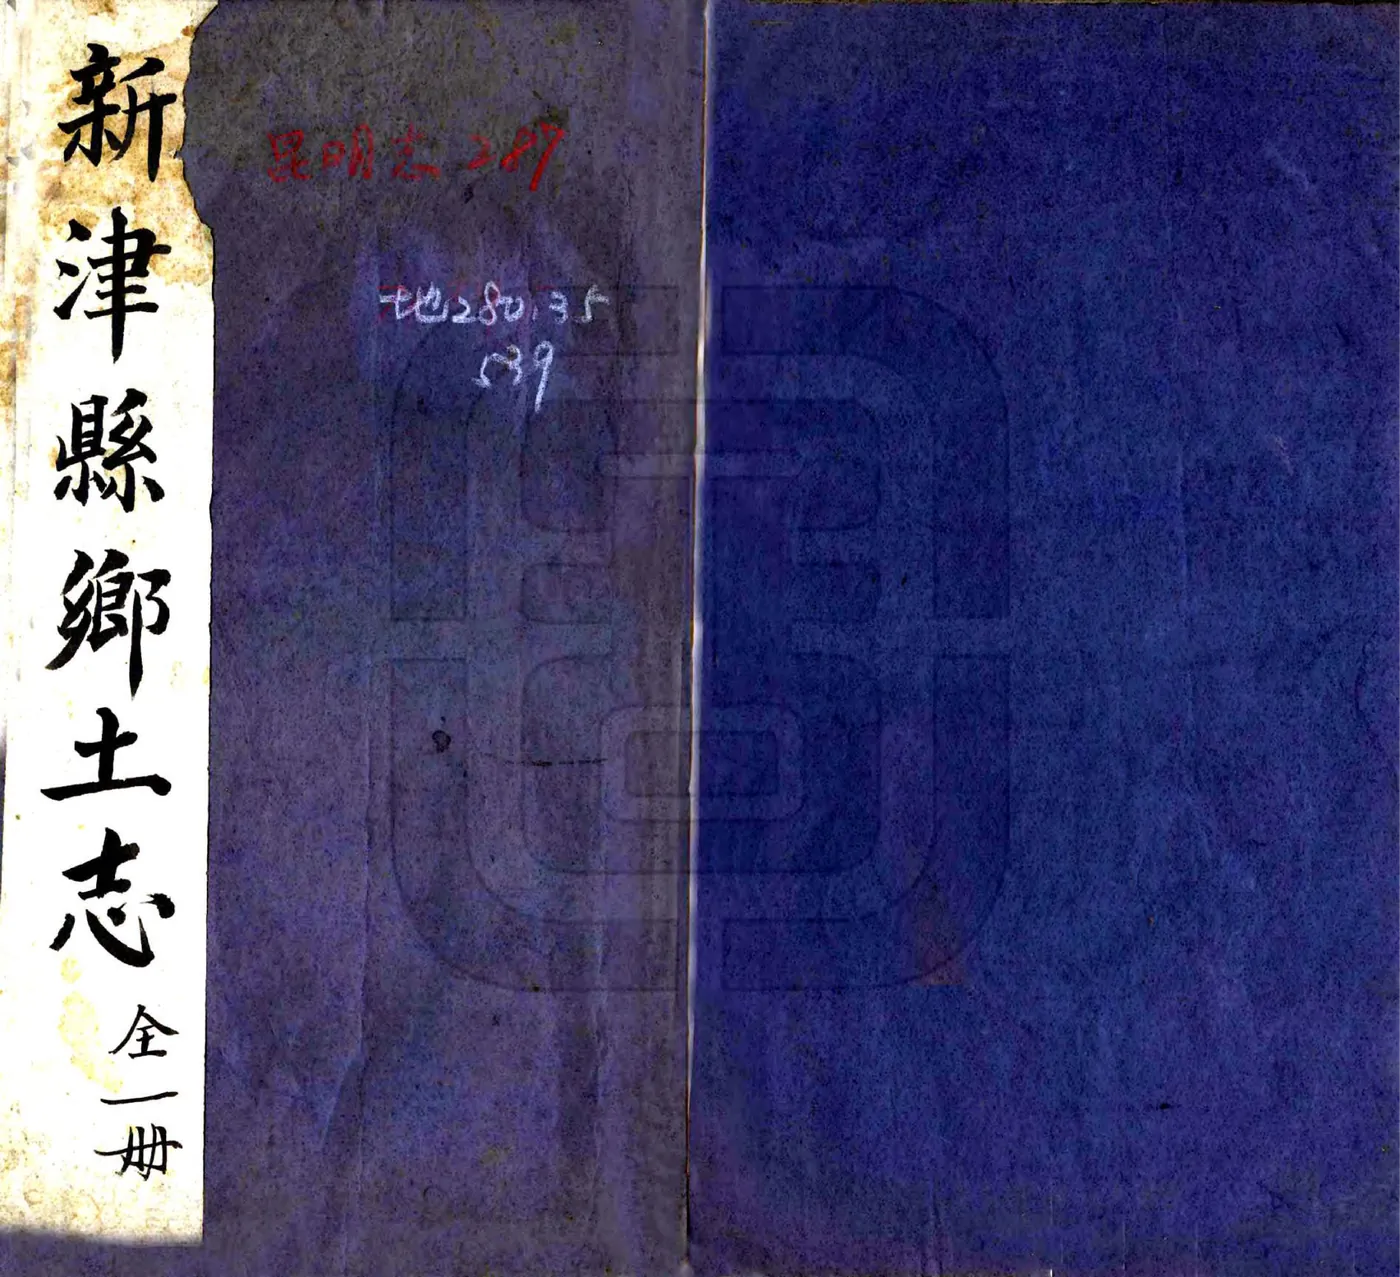 新津縣鄉土志 全一册
昆明志 287
地280.35
539